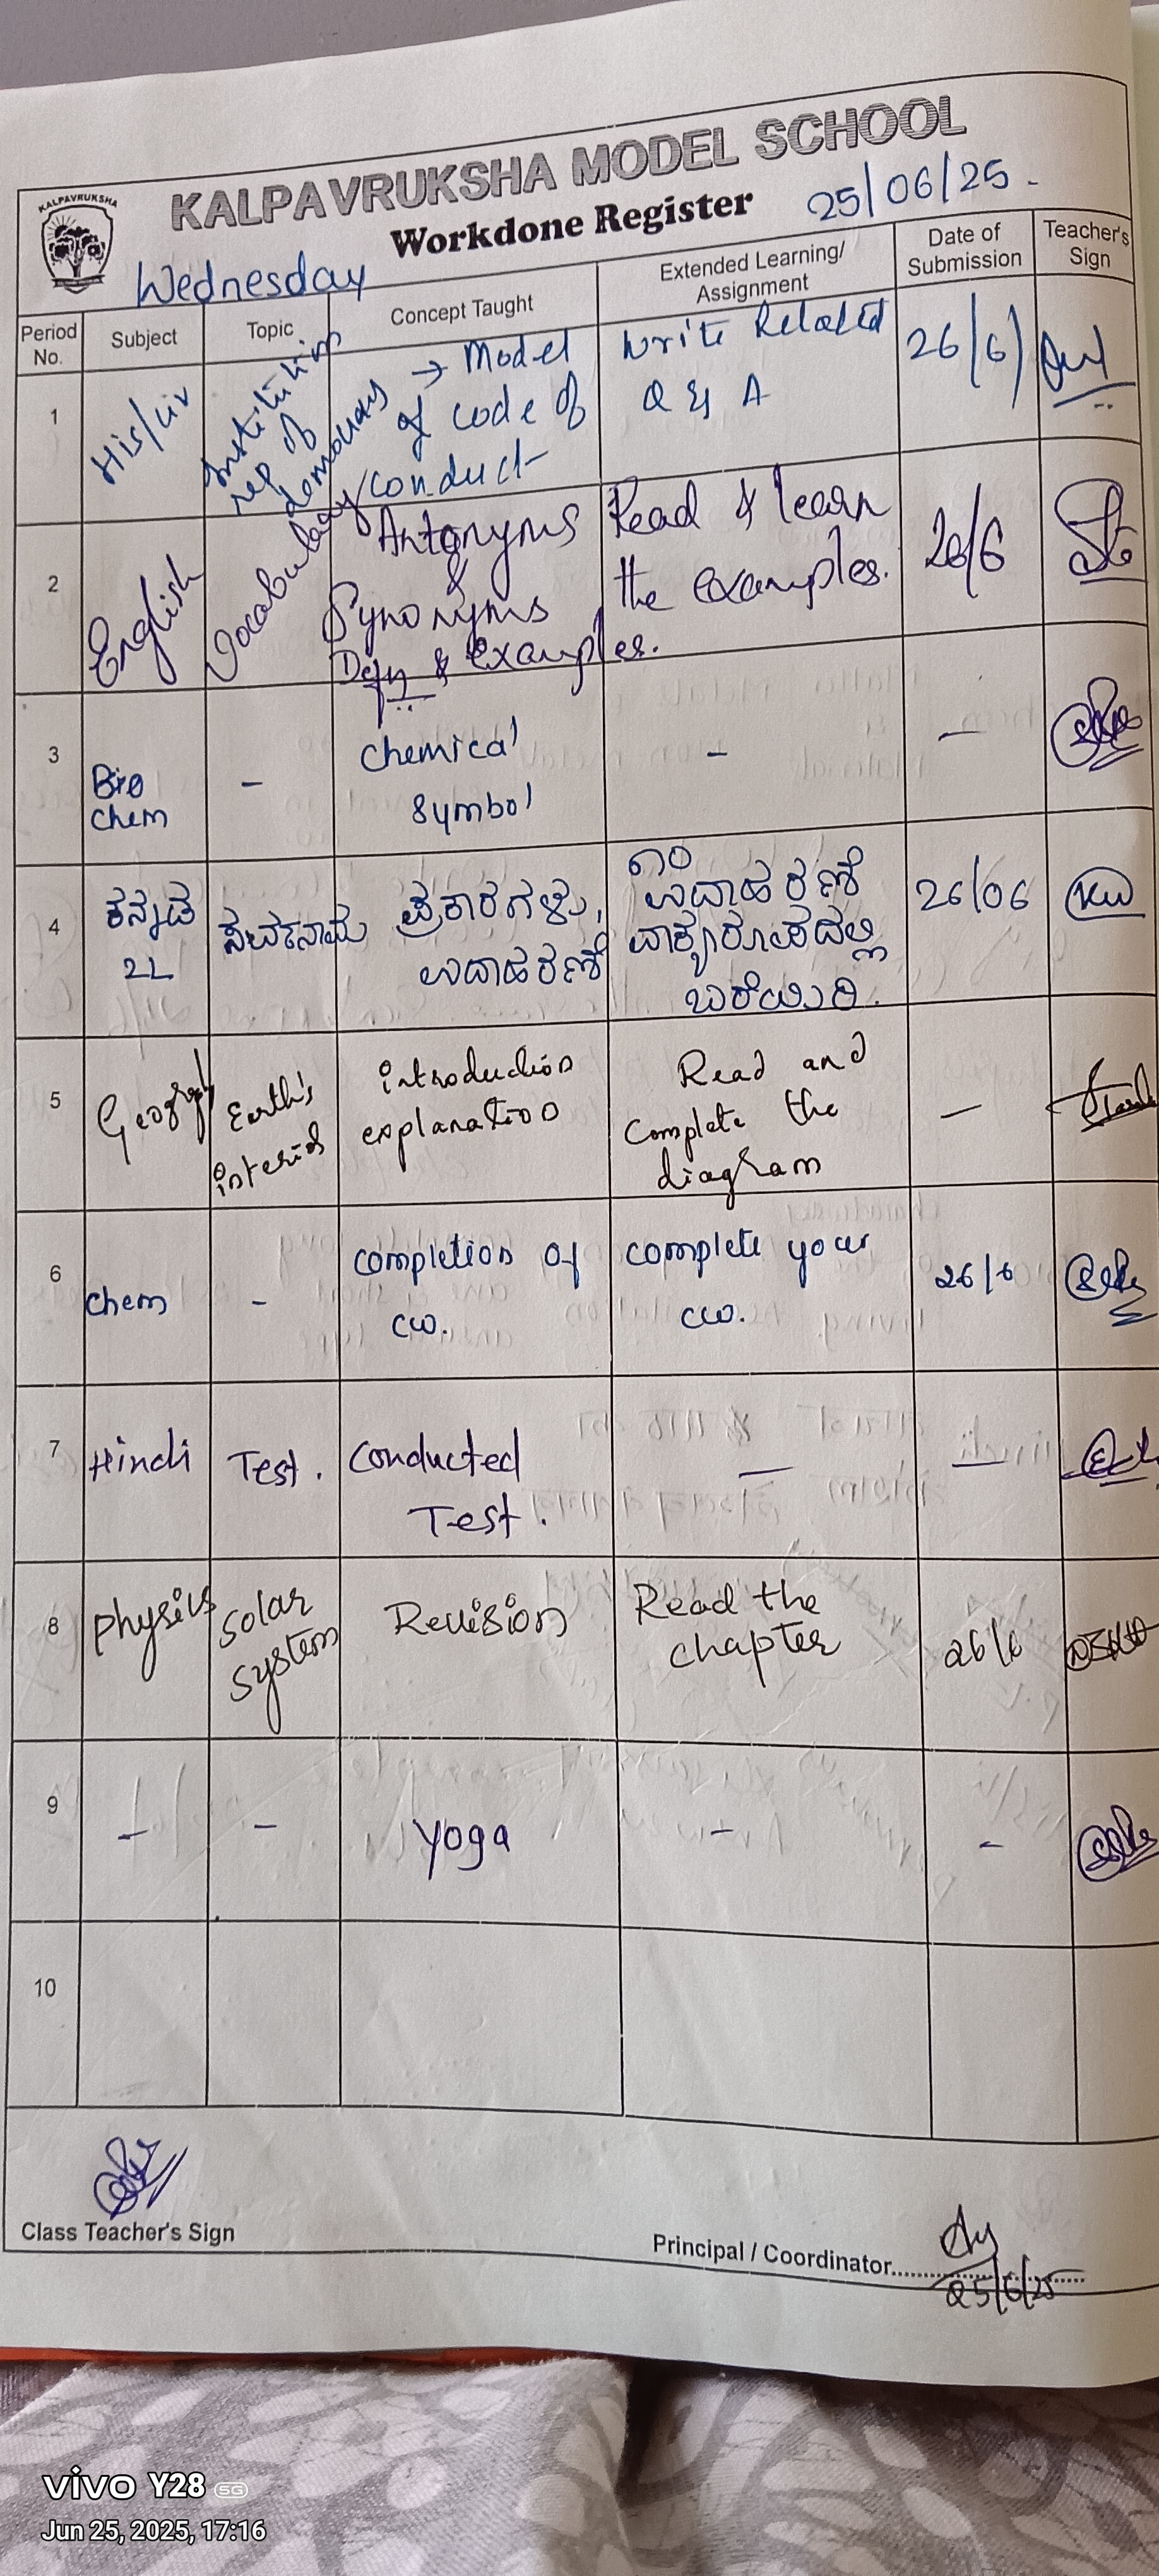 KALPAVRUKSHA
KALPAVRUKSHA MODEL SCHOOL
Workdone Register
25/06/25.
Wednesday
Period No.
Subject
Topic
Concept Taught
Extended Learning/
Assignment
Date of
Submission
Teacher's
Sign
1
His/civ
Institution
rep of
→ Model
of code of
conduct
Write Related
Q & A
26/6
2
English
Vocabulary
Antonyms
&
Synonyms
Defn & examples.
Read & learn
the examples.
26/6
3
Bio
Chem
-
Chemical
symbol
-
-
4
ಕನ್ನಡ
2L
ಸರ್ವನಾಮ
ಪ್ರಕಾರಗಳು,
ಉದಾಹರಣೆ
೧೦
ಉದಾಹರಣೆ
ವಾಕ್ಯರೂಪದಲ್ಲಿ
ಬರೆಯಿರಿ.
26/06
5
Geography
Earth's
interior
introduction
explanation
Read and
Complete the
diagram
-
6
Chem
-
completion of
cw.
complete your
cw.
26/6
7
Hindi
Test.
Conducted
Test.
-
-
8
Physics
Solar
system
Revision
Read the
chapter
26/6
9
-
-
Yoga
-
-
10
Class Teacher's Sign
Principal / Coordinator
25/6/25
vivo Y28 5G
Jun 25, 2025, 17:16